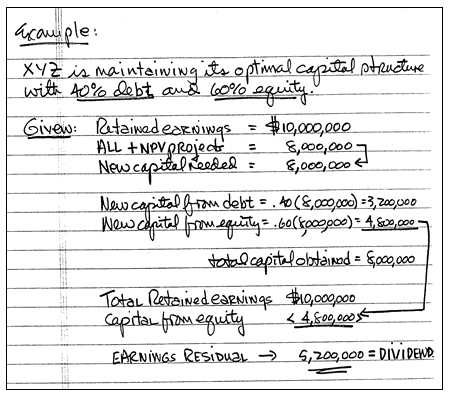 Example:
XYZ is maintaining its optimal capital structure
with 40% debt and 60% equity.
Given: Retained earnings = $10,000,000
ALL + NPV projects = 8,000,000
New capital needed = 8,000,000
New capital from debt = .40(8,000,000) = 3,200,000
New capital from equity = .60(8,000,000) = 4,800,000
total capital obtained = 8,000,000
Total Retained earnings $10,000,000
Capital from equity < 4,800,000 >
EARNINGS RESIDUAL → 5,200,000 = DIVIDEND